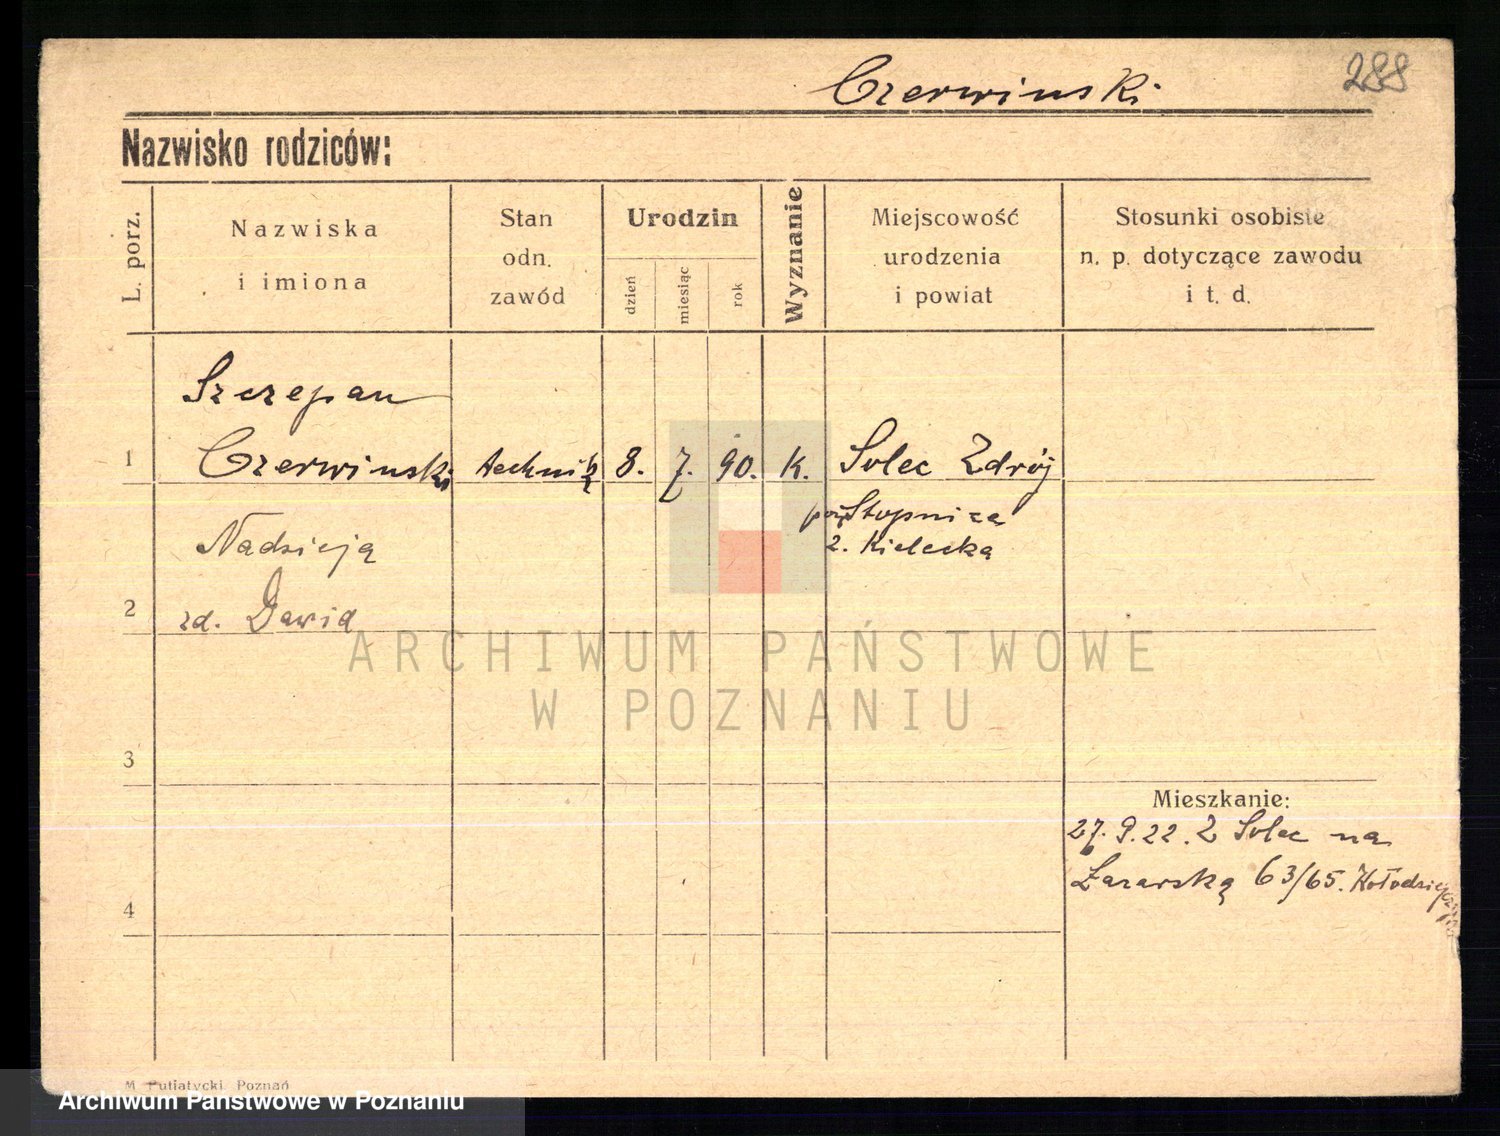 288
Czerwinski
Nazwisko rodziców:
L. porz.
Nazwiska
i imiona
Stan
odn.
zawód
Urodzin
dzień
miesiąc
rok
Wyznanie
Miejscowość
urodzenia
i powiat
Stosunki osobiste
n. p. dotyczące zawodu
i t. d.
Szczepan
1 Czerwinski technik 8. 7. 90. K. Solec Zdrój
Stopnica
z. Kielecka
Nadzieją
2 zd. Dawid
ARCHIWUM PAŃSTWOWE
W POZNANIU
3
Mieszkanie:
27. 9. 22. Z Solec na
63/65.
4
M. Putiatycki, Poznań
Archiwum Państwowe w Poznaniu